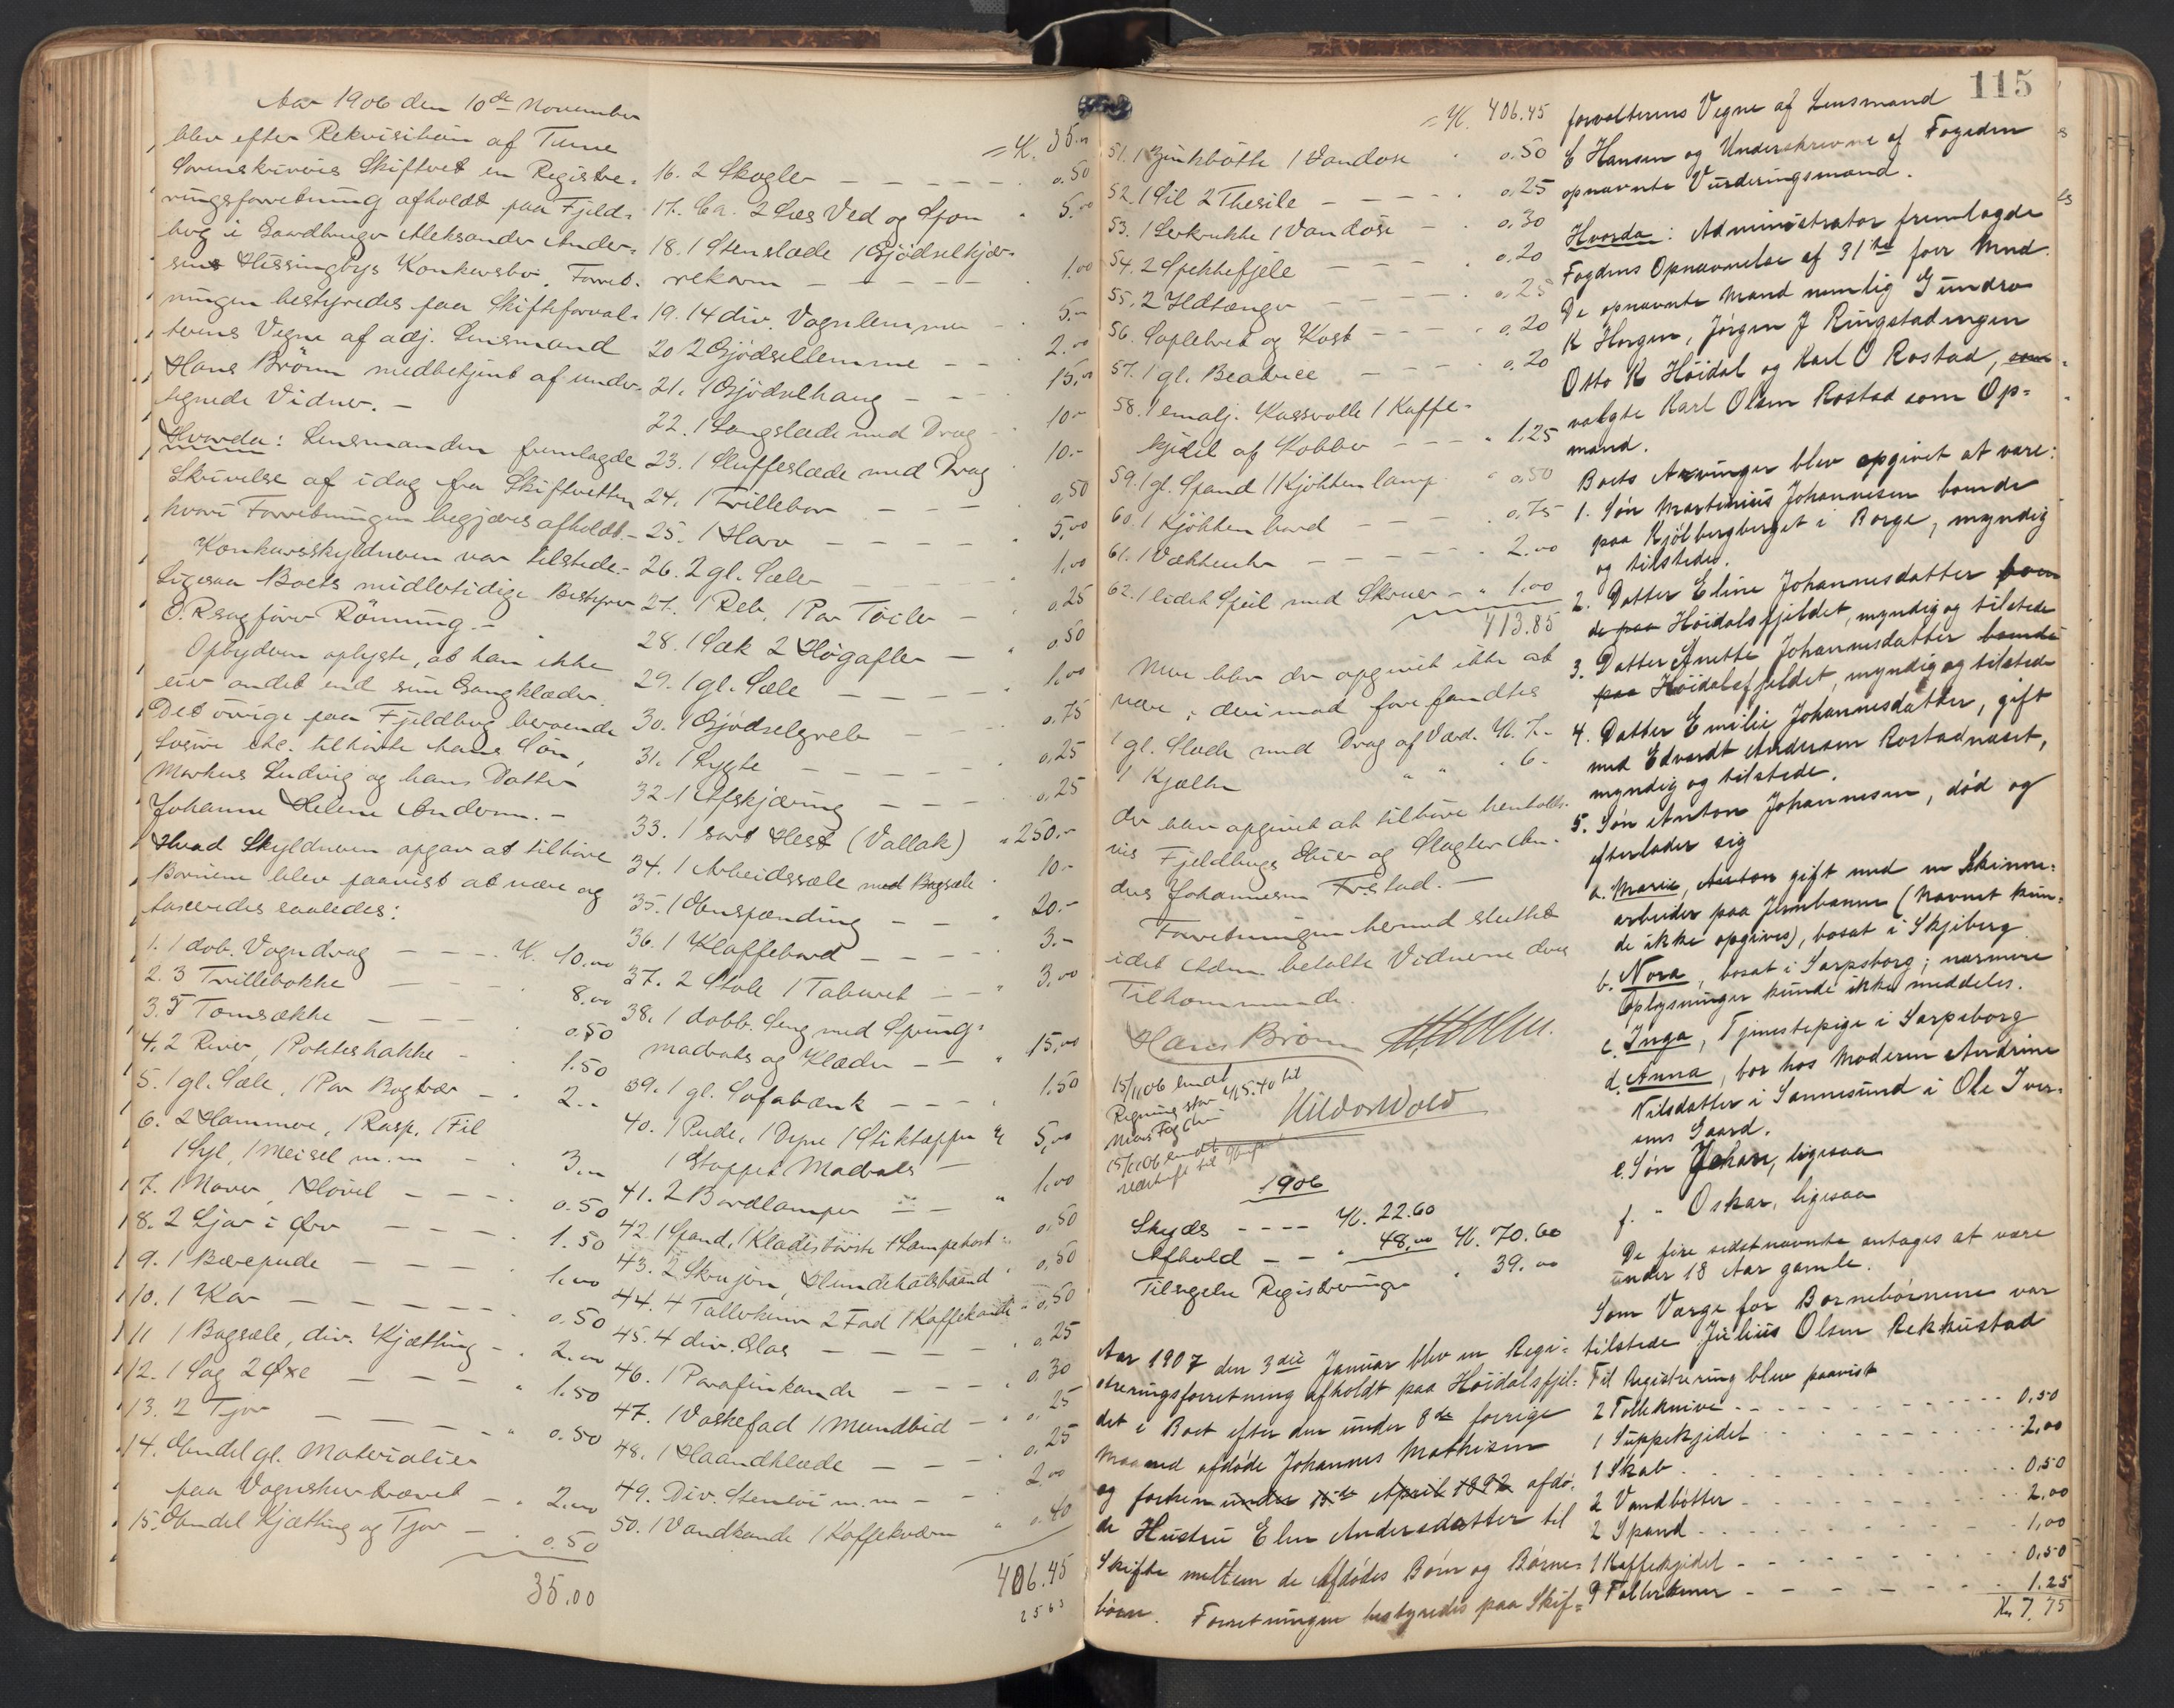 Aar 1906 den 10de November
blev efter Rekvisition af Tune
Sorenskriveris Skifteret en Registre-
ringsforretning afholdt paa Fjeld-
bug i Gaardbruger Aleksander Ander-
sens Hissingbys Konkursbo. Forret-
ningen bestyredes paa Skifteforval-
terens Vegne af adj. Lensmand
Hans Brönn medbetjent af under-
tegnede Vidner. -
Hvorda: Lensmanden fremlagde
Skrivelse af idag fra Skifteretten
hvori Forretningen begjæres afholdt. -
Konkursskyldneren var tilstede. -
Ligesaa Boets midlertidige Bestyrer
O.R.sagfører Rönning. -
Opbyderen oplyste, at han ikke
eier andet end sine Gangklæder.
Det övrige paa Fjeldbug beroende
Lösöre etc. tilhörte hans Sön,
Markus Ludvig og hans Datter
Johanne Helene Andersen. -
Hvad Skyldneren opgav at tilhöre
Börnene blev paavist at være og
taxeredes saaledes:
1. 1 dob. Vogndrag - - - Kr. 10.00
2. 3 Trillebokke - - - 8.00
3. 5 Tomsække - - - 0.50
4. 2 River, 1 Pottethakke - 1.50
5. 1 gl. Sæle, 1 Par Bogtrær - 2.-
6. 2 Hammere, 1 Rasp, 1 Fil
1 Syl, 1 Meisel m.m - - 3.00
7. 1 Naver, 1 Hövel - - - 0.50
8. 2 Ljar i Orv - - - 1.50
9. 1 Bærepude - - - 1.00
10. 1 Kar - - - - 0.50
11 1 Bagsæle, div. Kjætting - 2.00
12. 1 Sag 2 Øxe - - - 1.50
13. 2 Tjor - - - 0.50
14. Endel gl. Materialier
paa Vognskur - 2.00
15. Endel Kjætting og Tjor - 0.50
35.00
= Kr. 35.00
16. 2 Skogler - - - - 0.50
17. Ca. 2 Læs Ved og Spon 5.00
18. 1 Stenslæde 1 Gjödselkjær-
rekarm - - - - 1.00
19. 14 div. Vognlemmer - 5.-
20 2 Gjödsellemme - - 2.00
21. 1 Gjödselhaug - - 15.00
22. 1 Langslæde med Drag - 10.-
23. 1 Sluffeslæde med Drag 10.-
24. 1 Trillebor - - - 0.50
25. 1 Harv - - - 5.00
26. 2 gl. Sæler - - 1.00
27. 1 Reb, 1 Par Töiler - 0.25
28. 1 Sæk 2 Høgafler - 0.50
29. 1 gl. Sæle - - - 1.00
30. 1 Gjödselgreb - - - 0.75
31. 1 Lygte - - - - 0.25
32. 1 Afskjæring - - - 0.25
33. 1 sort Hest (Vallak) 250.-
34. 1 Arbeidssæle med Bagsæle 10.-
35. 1 Enspænding - - 20.-
36. 1 Klaffebord - - - 3.-
37. 2 Stole 1 Taburet - - 3.00
38. 1 dobb. Seng med Spring-
madrats og Klæder - - 15.00
39. 1 gl. Sofabænk - - - 1.50
40. 1 Pude, 1 Dyne 1 Stiktæppe &
1 Stoppet Madrats - 5.00
41. 2 Bordlamper - 1.00
42. 1 Spand, 1 Klædesbörste 1 Lampekost 0.50
43. 2 Skrujern, Hundehalsbaand 0.50
44. 4 Tallerkener 2 Fad 1 Kaffekande 0.50
45. 4 div. Glas - - - 0.25
46. 1 Parafinkande - - - 0.30
47. 1 Vaskefad 1 Mundbid - 0.25
48. 1 Haandklæde - - - 0.25
49. Div. Stentöi m.m - - 2.00
50. 1 Vandkande 1 Kaffekværn 0.40
406.45
2563
= Kr. 406.45
51. 1 Zinkbøtte 1 Vandøse 0.50
52. 1 Sil 2 Thesile - - - 0.25
53. 1 Lerkrukke 1 Vandøse - 0.30
54. 2 Spekkefjele - - - 0.20
55. 2 Ildtænger - - - 0.25
56. Soplebret og Kost - - - 0.20
57. 1 gl. Beatrice - - - 0.20
58. 1 emalj. Kasserolle 1 Kaffe-
kjedel af Kobber - - - 1.25
59. 1 gl. Spand 1 Kjøkkenlamp. 0.50
60. 1 Kjøkkenbord - - - 0.75
61. 1 Vækkeuhr - - - 2.00
62. 1 lidet Speil med Skruer - 1.00
413.85
Mere blev der opgivet ikke at
være; derimod fore fandtes
1 gl. Slæde med Drag af Værd. Kr. 7.-
1 Kjælke " " " 6-
der blev opgivet at tilhöre henholds-
vis Fjeldbugs Eier og Slagter An-
dreas Johannesen Frestad. -
Forretningen hermed sluttet
idet Adm. betalte Vidnerne deres
Tilkommende.
Hans Brönn
Hildor Wold
15/11 06 sendt
Regning stor Kr 15.40 til
15/11 06 sendt
1906
Skyds - - - - Kr. 22.60
Afhold - - " 48.00 Kr. 70.60
Tilsigelse Registreringer " 39.00
Aar 1907 den 3die Januar blev en Regi-
streringsforretning afholdt paa Høidalsfjel-
det i Boet efter den under 8de forrige
Maaned afdøde Johannes Mathisen
og forhen under 15de April 1892 afdø-
de Hustru Elen Andersdatter til
Skifte mellem de Afdødes Børn og Børne-
børn. Forretningen bestyredes paa Skif-
115
forvalterens Vegne af Lensmand
C Hansen og Underskrevne af Fogeden
opnævnte Vurderingsmænd.
Hvorda: Administrator fremlagde
Fogdens Opnævnelse af 31te forr Mnd.
De opnævnte Mænd nemlig Gundro
K Horgen, Jørgen J Ringstadengen
Otto K Høidal og Karl O Rostad, som
valgte Karl Olsen Rostad som Op-
mand.
Boets Arvinger blev opgivet at være:
1. Søn Martinius Johannesen boende
paa Kjølbergberget i Borge, myndig
og tilstede.
2. Datter Eline Johannesdatter boen
de paa Høidalsfjeldet, myndig og tilstede
3. Datter Anette Johannesdatter boende
paa Høidalsfjeldet, myndig og tilstede
4. Datter Emilie Johannesdatter, gift
med Edvardt Andersen Rostadnæset,
myndig og tilstede.
5. Søn Anton Johannesen, død og
efterlader sig
a. Marie, Anton gift med en Skinne-
arbeider paa Jernbanen (navnet kun-
de ikke opgives), bosat i Skjeberg
b. Nora, bosat i Sarpsborg; nærmere
Oplysninger kunde ikke meddeles.
c. Inga, Tjenestepige i Sarpsborg
d. Anna, bor hos Moderen Andrine
Nilsdatter i Sannesund i Ole Iver-
sens Gaard.
e. Søn Johan, ligesaa
f. " Oskar, ligesaa
De fire sidstnævnte antages at være
under 18 Aar gamle.
Som Værge for Børnebørnene var
tilstede Julius Olsen Rekkustad
Til Registrering blev paavist
2 Tolleknive - - - 0,50
1 Suppekjedel - - - 2,00
1 Skab - - - 0,50
2 Vandbøtter - - - 2,00
2 Spand - - - 1,00
1 Kaffekjedel - - - 0,50
9 Tallerkener - - - 1.25
Kr 7,75